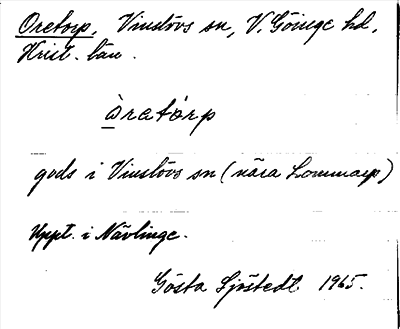 Oretorp, Vinslövs sn, V. Göinge hd,
Krist. län.
òretórp
gods i Vinslövs sn (nära Lommarp)
Uppt. i Nävlinge.
Gösta Sjöstedt 1965.